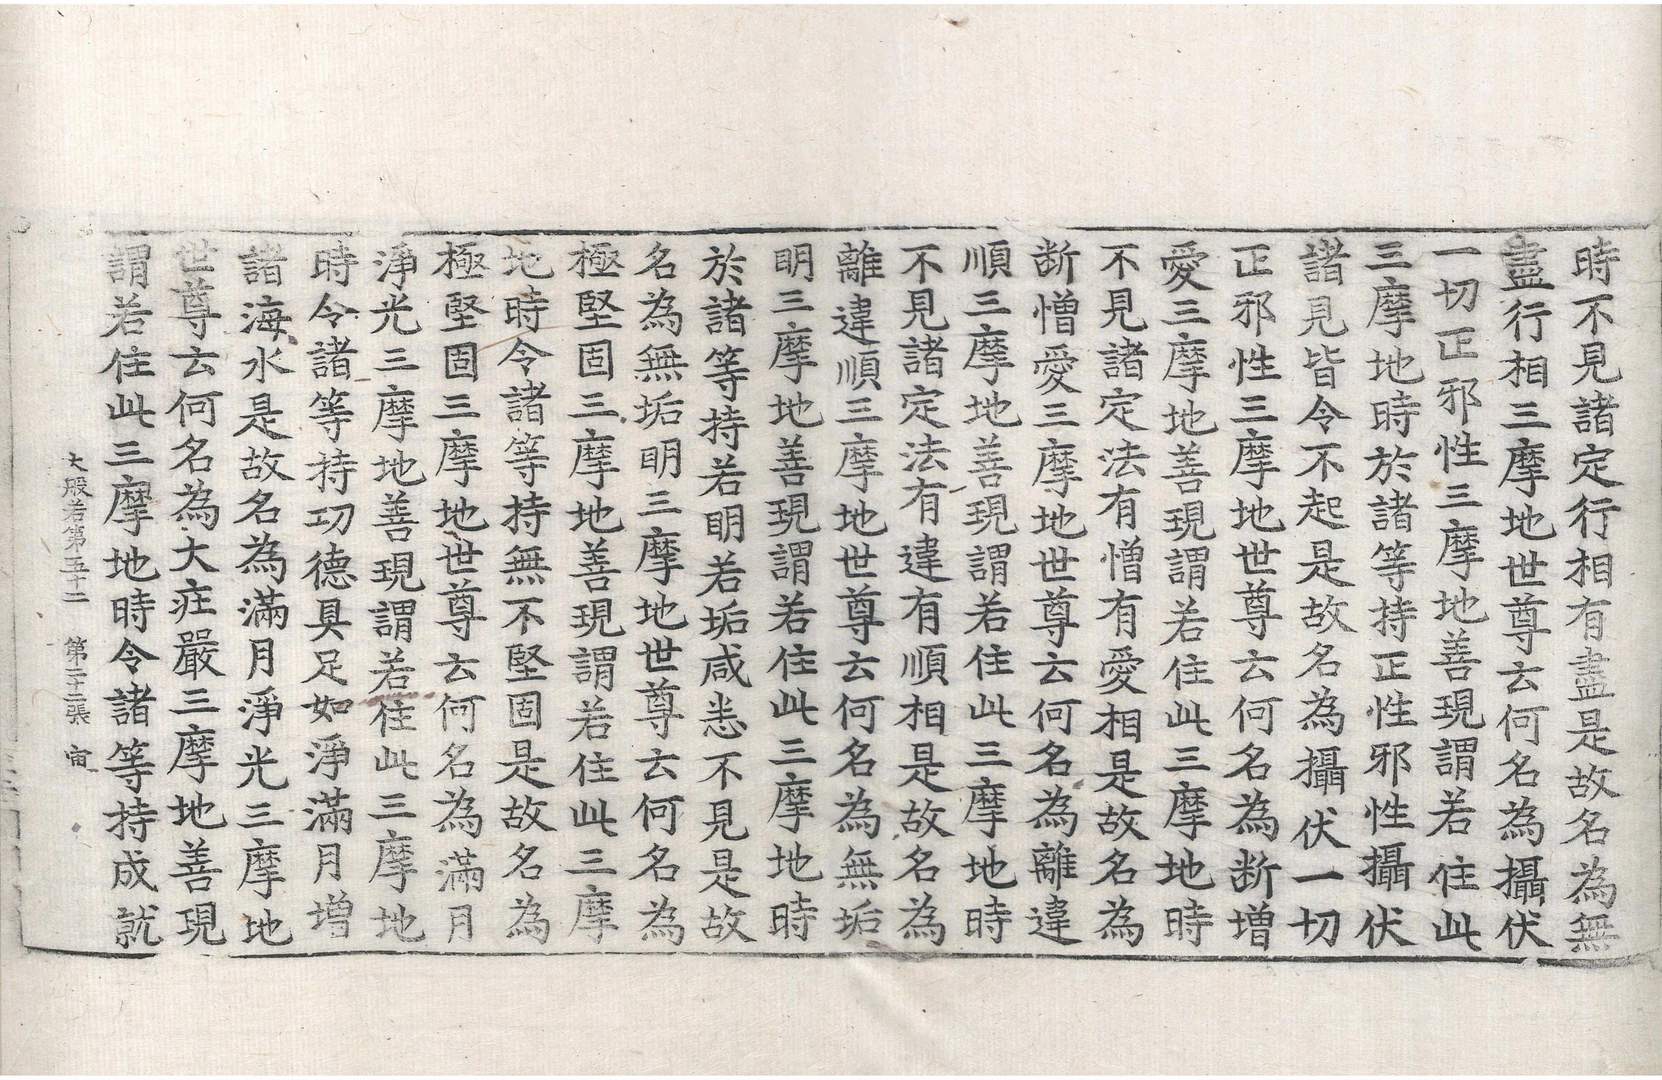 時不見諸定行相有盡是故名為無
盡行相三摩地世尊云何名為攝伏
一切正邪性三摩地善現謂若住此
三摩地時於諸等持正性邪性攝伏
諸見皆令不起是故名為攝伏一切
正邪性三摩地世尊云何名為断增
愛三摩地善現謂若住此三摩地時
不見諸定法有憎有愛相是故名為
断憎愛三摩地世尊云何名為離違
順三摩地善現謂若住此三摩地時
不見諸定法有違有順相是故名為
離違順三摩地世尊云何名為無垢
明三摩地善現謂若住此三摩地時
於諸等持若明若垢咸悉不見是故
名為無垢明三摩地世尊云何名為
極堅固三摩地善現謂若住此三摩
地時令諸等持無不堅固是故名為
極堅固三摩地世尊云何名為滿月
淨光三摩地善現謂若住此三摩地
時令諸等持功德具足如淨滿月增
諸海水是故名為滿月淨光三摩地
世尊云何名為大庄嚴三摩地善現
謂若住此三摩地時令諸等持成就
大般若第五十二 第二十二張 宙